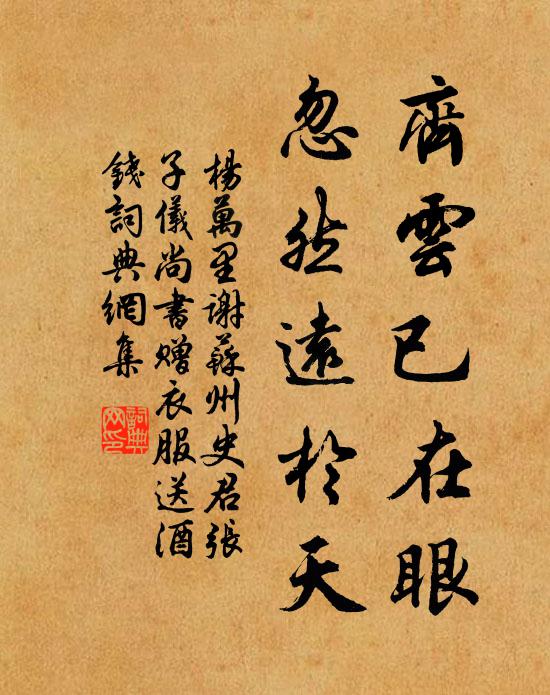 齊雲已在眼
忽然遠於天
楊萬里謝蘇州史君張
子儀尚書贈衣服送酒
錢詞典網集
詞典
网印